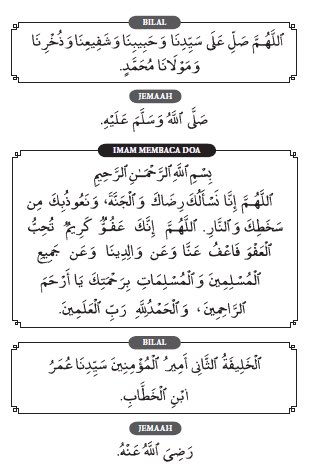 BILAL
اَللَّهُمَّ صَلِّ عَلَى سَيِّدِنَا وَحَبِيبِنَا وَشَفِيعِنَا وَذُخْرِنَا
وَمَوْلَانَا مُحَمَّدٍ.
JEMAAH
صَلَّى اللَّهُ وَسَلَّمَ عَلَيْهِ.
IMAM MEMBACA DOA
بِسْمِ اللَّهِ الرَّحْمَـٰنِ الرَّحِيمِ
اَللَّهُمَّ إِنَّا نَسْأَلُكَ رِضَاكَ وَالْجَنَّةَ، وَنَعُوذُبِكَ مِن
سَخَطِكَ وَالنَّارِ. اَللَّهُمَّ إِنَّكَ عَفُوٌّ كَرِيمٌ تُحِبُّ
الْعَفْوَ فَاعْفُ عَنَّا وَعَن وَالِدِينَا وَعَن جَمِيعِ
الْمُسْلِمِينَ وَالْمُسْلِمَاتِ بِرَحْمَتِكَ يَا أَرْحَمَ
الرَّاحِمِينَ، وَالْحَمْدُلِلَّهِ رَبِّ الْعَلَمِينَ.
BILAL
اَلْخَلِيفَةُ الثَّانِى أَمِيرُ الْمُؤْمِنِينَ سَيِّدِنَا عُمَرُ
ابْنِ الْخَطَّابِ.
JEMAAH
رَضِيَ اللَّهُ عَنْهُ.